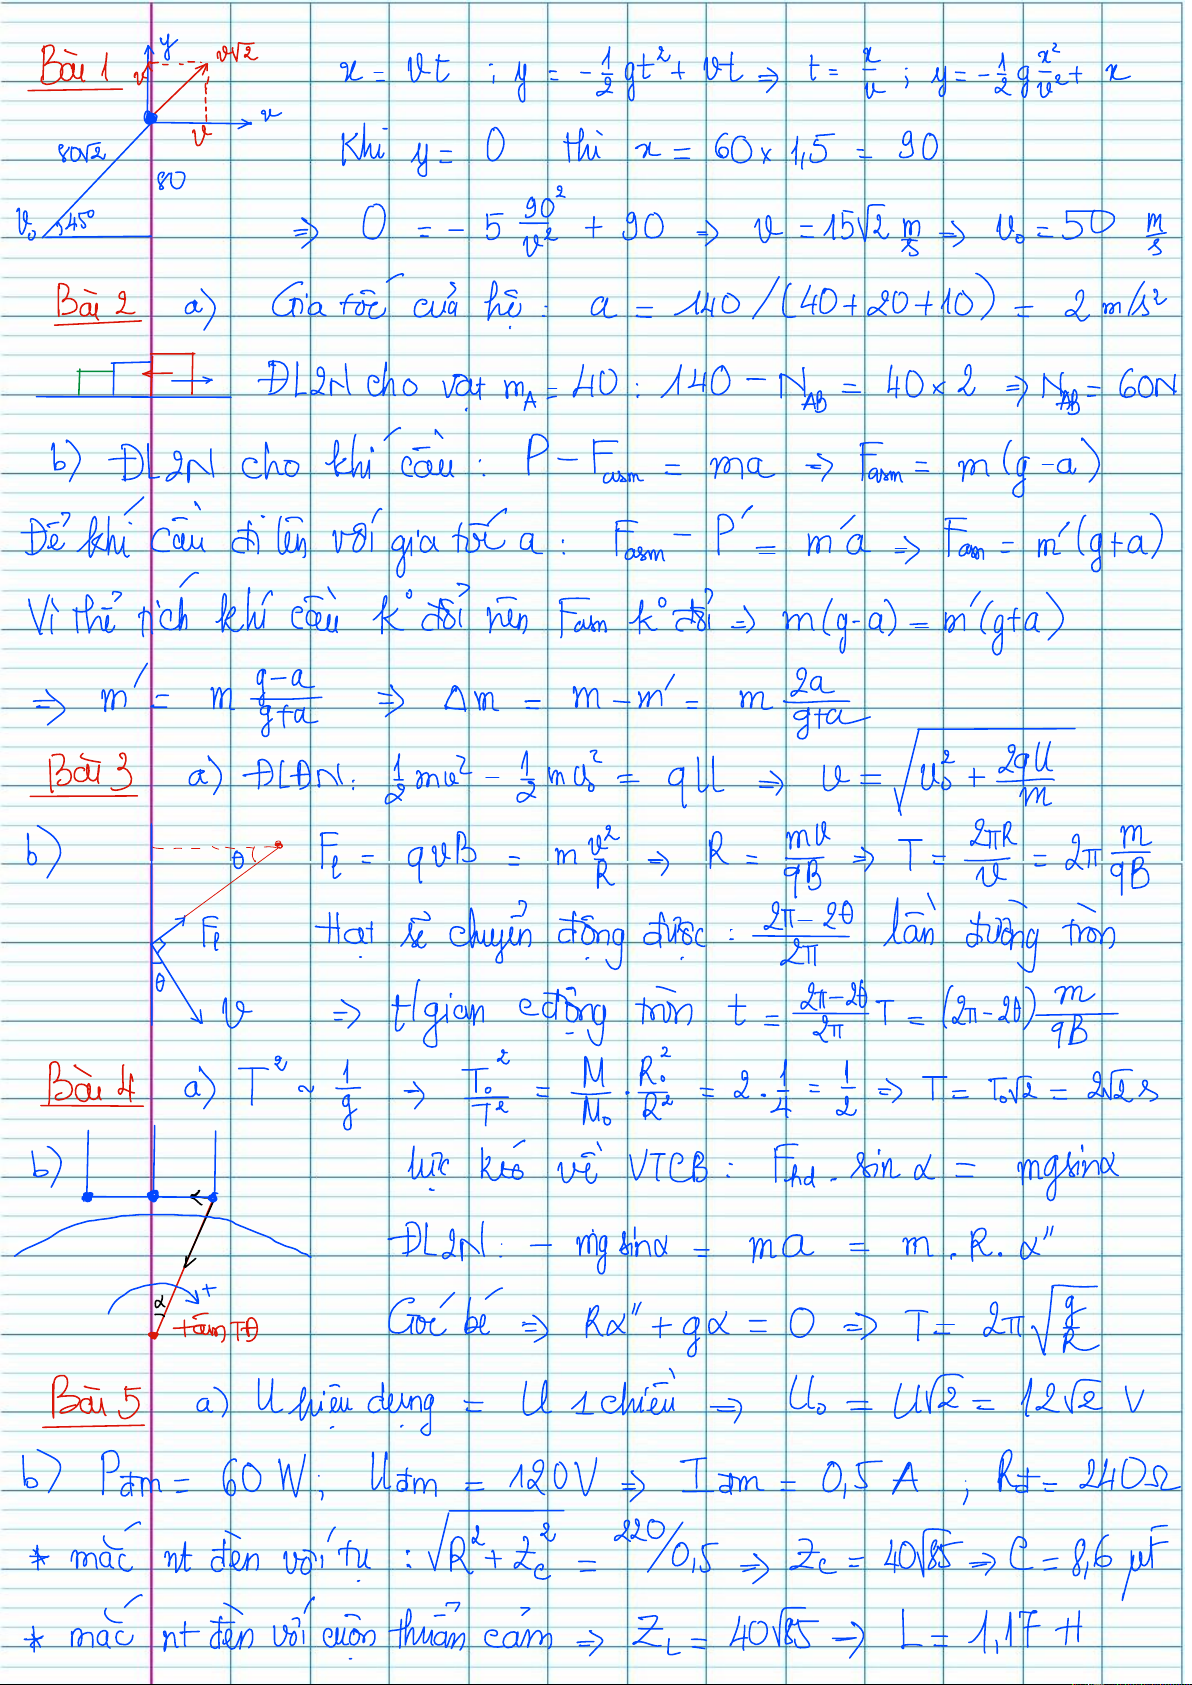 Bài 1 x = vt ; y = -1/2 gt² + vt ⇒ t = x/v ; y = -1/2 g x²/v² + x
y v√2 v v x
80√2 80 v₀ 45°
Khi y = 0 thì x = 60 × 1,5 = 90
⇒ 0 = -5 90²/v² + 90 ⇒ v = 15√2 m/s ⇒ v₀ = 50 m/s
Bài 2 a) Gia tốc của hệ : a = 140/(40+20+10) = 2 m/s²
ĐL2N cho vật m_A = 40 : 140 - N_AB = 40 × 2 ⇒ N_AB = 60N
b) ĐL2N cho khí cầu : P - Fasm = ma ⇒ Fasm = m(g-a)
Để khí cầu đi lên với gia tốc a : Fasm - P' = m'a ⇒ Fam = m'(g+a)
Vì thể tích khí cầu k° đổi nên Fam k° đổi ⇒ m(g-a) = m'(g+a)
⇒ m' = m (g-a)/(g+a) ⇒ Δm = m - m' = m 2a/(g+a)
Bài 3 a) ĐLĐN: 1/2 mv² - 1/2 mv₀² = qU ⇒ v = √(v₀² + 2qU/m)
b) θ Fℓ = qvB = m v²/R ⇒ R = mv/qB ⇒ T = 2πR/v = 2π m/qB
Fℓ Hạt sẽ chuyển động được : (2π-2θ)/2π lần đường tròn
θ v ⇒ t/gian cđộng tròn t = (2π-2θ)/2π T = (2π-2θ) m/qB
Bài 4 a) T² ~ 1/g → T₀²/T² = M/M₀ . R₀²/R² = 2 . 1/4 = 1/2 ⇒ T = T₀√2 = 2√2 s
b) lực kéo về VTCB : Fhd . sin α = mg sin α
ĐL2N: - mg sin α = ma = m . R . α''
α + tâm TĐ Góc bé ⇒ Rα'' + gα = 0 ⇒ T = 2π √(g/R)
Bài 5 a) U hiệu dụng = U 1 chiều ⇒ U₀ = U√2 = 12√2 V
b) Pđm = 60 W ; Uđm = 120V ⇒ Iđm = 0,5 A ; Rđ = 240Ω
* mắc nt đèn với tụ : √(R² + Z_C²) = 220/0,5 ⇒ Z_C = 40√85 ⇒ C = 8,6 μF
* mắc nt đèn với cuộn thuần cảm ⇒ Z_L = 40√85 → L = 1,17 H